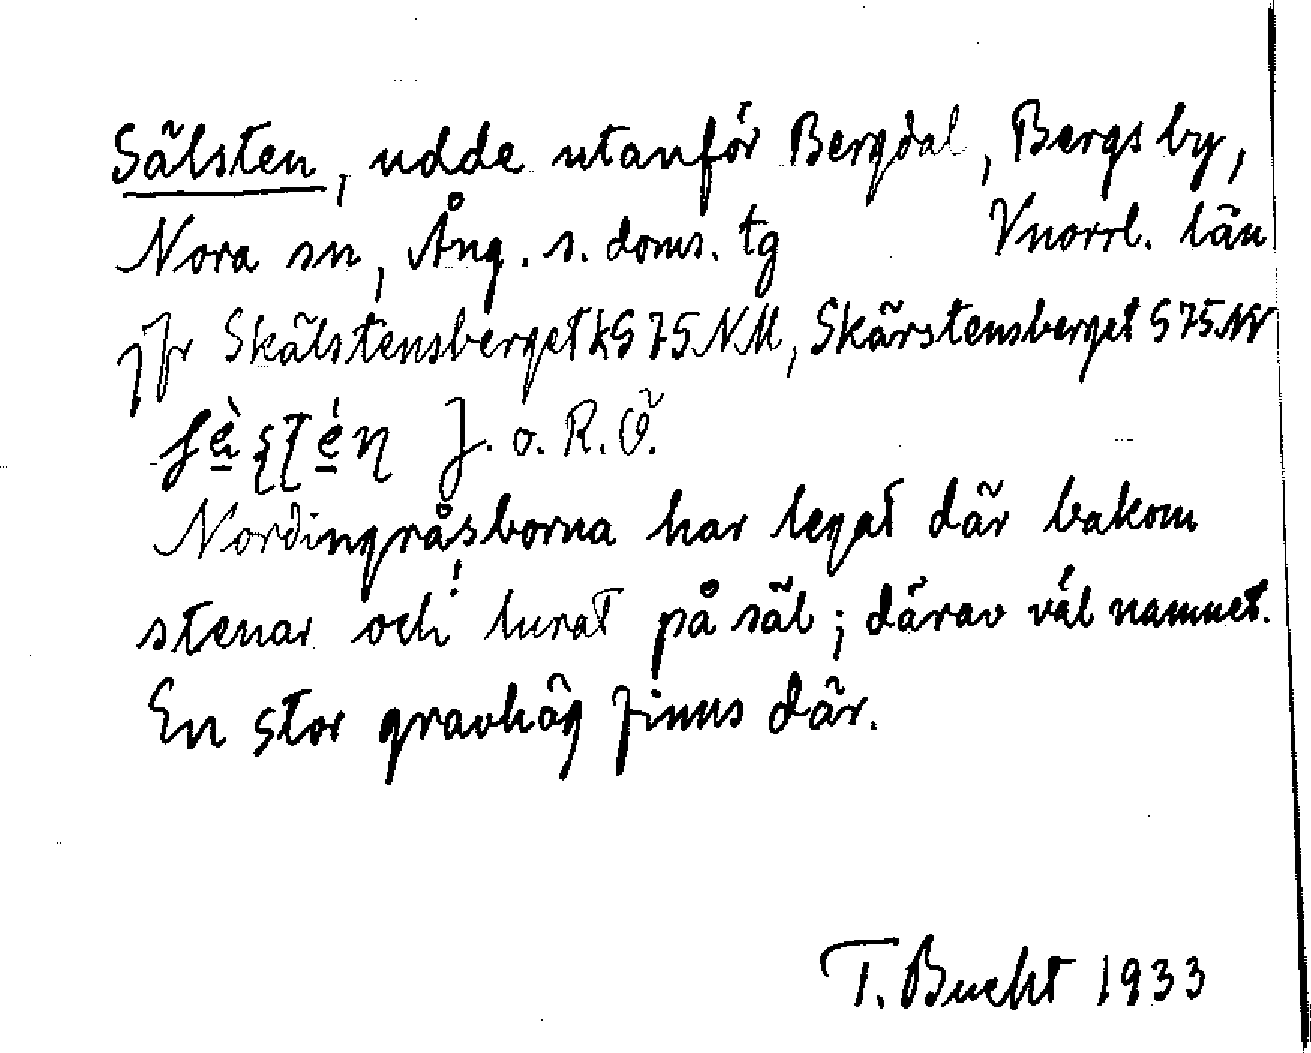 Sälsten, udde utanför Bergdal, Bergs by,
Nora sn, Ång. s. doms. tg Vnorrl. län
jfr Skälstensberget S 75 NV, Skärstensberget S 75 NV
J. o. R. Ö.
Nordingråsborna har legat där bakom
stenar och! lurat på säl; därav väl namnet.
En stor gravhög finns där.
T. Bucht 1933